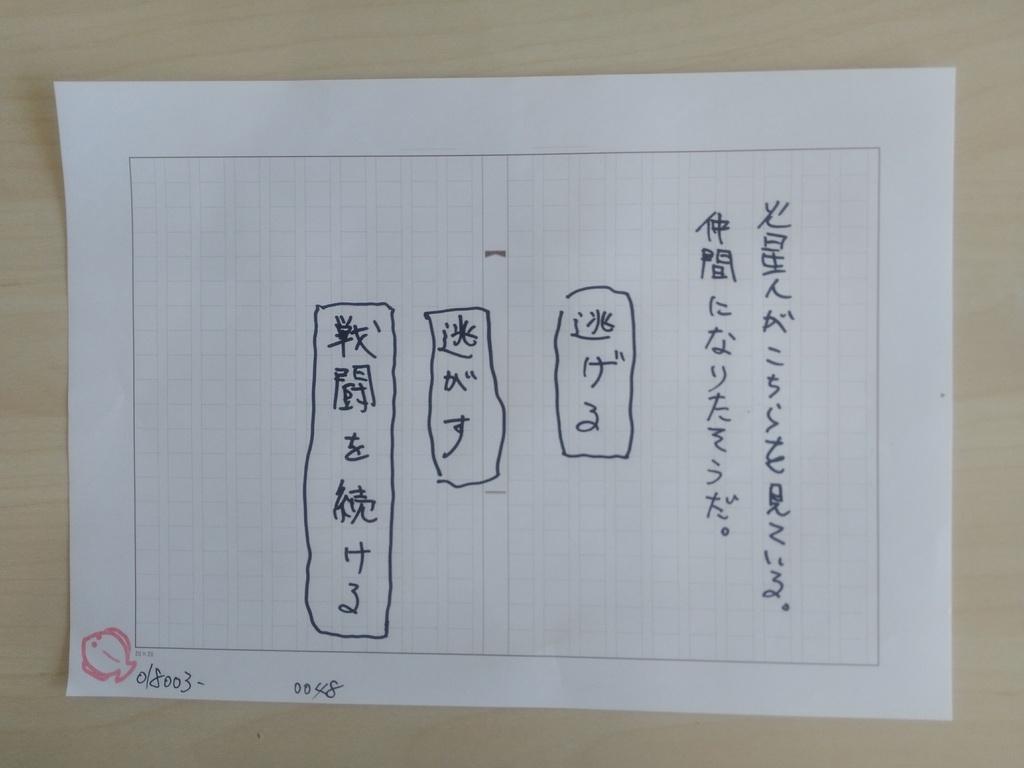 火星人がこちらを見ている。
仲間になりたそうだ。
逃げる
逃がす
戦闘を続ける
018003-
0048